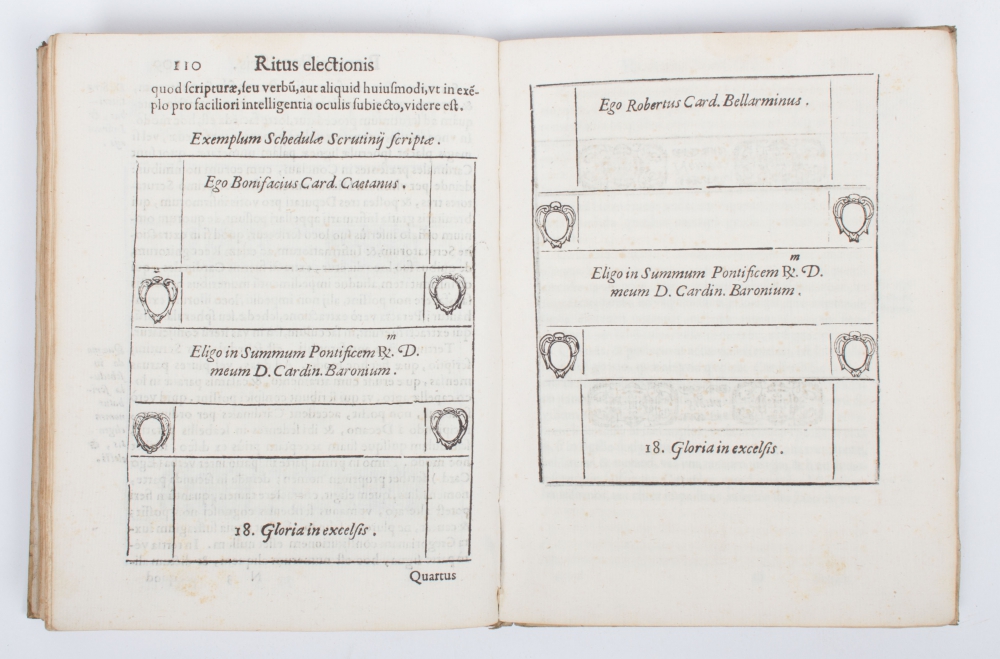 110 Ritus electionis
quod ſcripturæ, ſeu verbū, aut aliquid huiuſmodi, vt in exē-
plo pro faciliori intelligentia oculis ſubiecto, videre eſt.
Exemplum Schedulæ Scrutinij ſcriptæ.
Ego Bonifacius Card. Caetanus.
Eligo in Summum Pontificem R. m D.
meum D. Cardin. Baronium.
18. Gloria in excelſis.
Quartus
Ego Robertus Card. Bellarminus.
Eligo in Summum Pontificem R. m D.
meum D. Cardin. Baronium.
18. Gloria in excelſis.